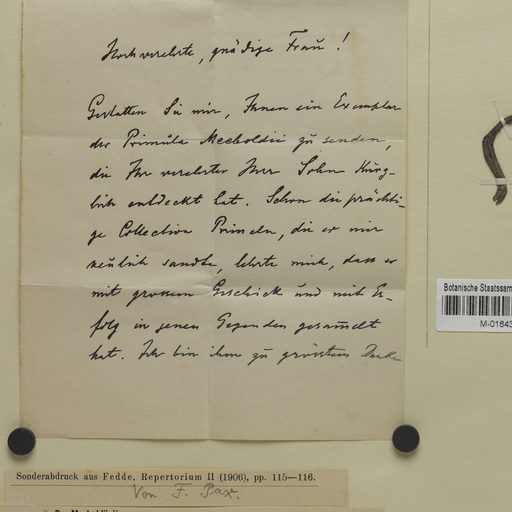 Hochverehrte, gnädige Frau!
Gestatten Sie mir, Ihnen ein Exemplar
der Primula Meeboldii zu senden,
die Ihr verehrter Herr Sohn kürz-
lich entdeckt hat. Schon die prächti-
ge Collection Primeln, die er mir
neulich sandte, lehrte mich, dass er
mit grossem Geschick und mit Er-
folg in jenen Gegenden gesammelt
hat. Ich bin ihm zu grösstem Danke
Botanische Staatssam
M-01643
Sonderabdruck aus Fedde, Repertorium II (1906), pp. 115—116.
Von F. Pax.